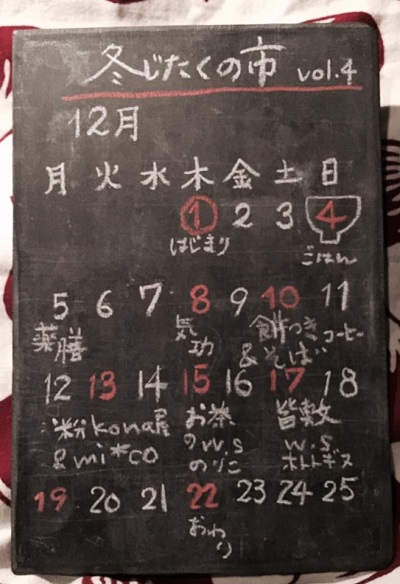 冬じたくの市 vol.4
12月
月 火 水 木 金 土 日
1 2 3 4
はじまり ごはん
5 6 7 8 9 10 11
薬膳 気功 餅つき & そば コーヒー
12 13 14 15 16 17 18
粉 kona屋 & mi*co
お茶のw.s のりこ
皆敷 w.s ホトトギス
19 20 21 22 23 24 25
おわり